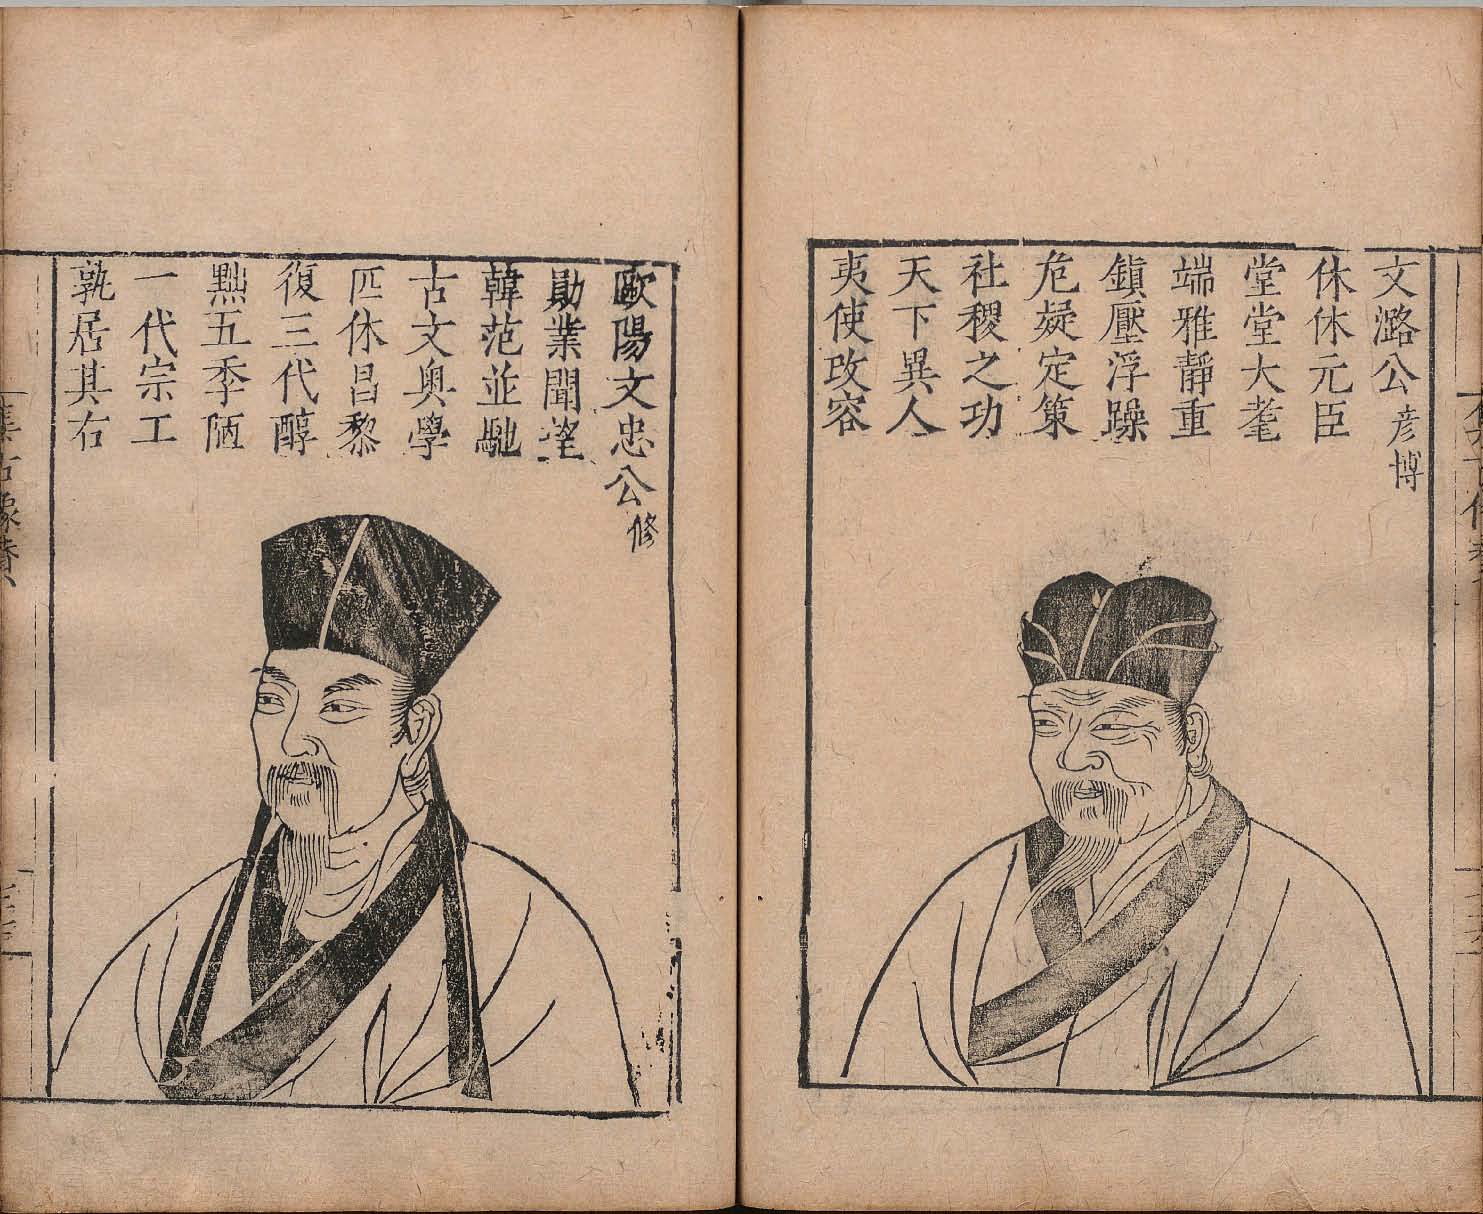 文潞公彦博
休休元臣
堂堂大耄
端雅靜重
鎮壓浮躁
危疑定策
社稷之功
天下異人
夷使改容
歐陽文忠公修
勛業聞望
韓范並馳
古文奥學
匹休昌黎
復三代醇
黜五季陋
一代宗工
孰居其右
集古像賛